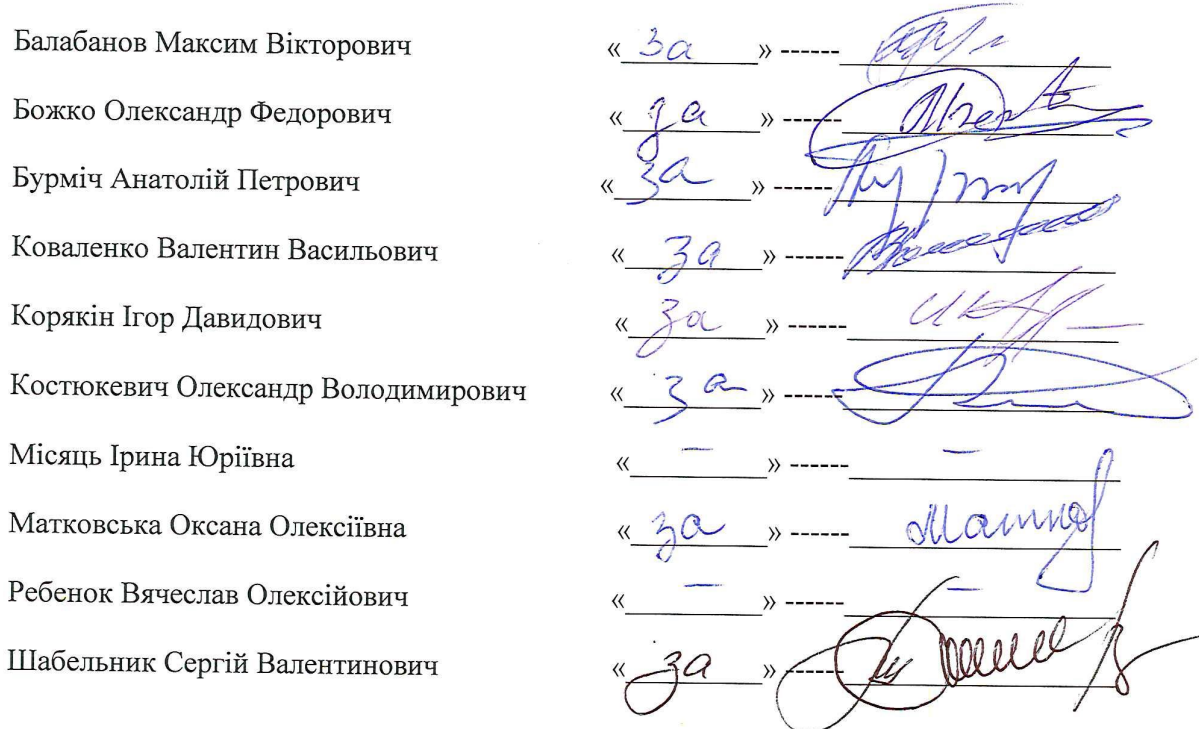 Балабанов Максим Вікторович « за » ------
Божко Олександр Федорович « за » ------
Бурміч Анатолій Петрович « за » ------
Коваленко Валентин Васильович « за » ------
Корякін Ігор Давидович « за » ------
Костюкевич Олександр Володимирович « за » ------
Місяць Ірина Юріївна « – » ------ –
Матковська Оксана Олексіївна « за » ------
Ребенок Вячеслав Олексійович « – » ------ –
Шабельник Сергій Валентинович « за » ------